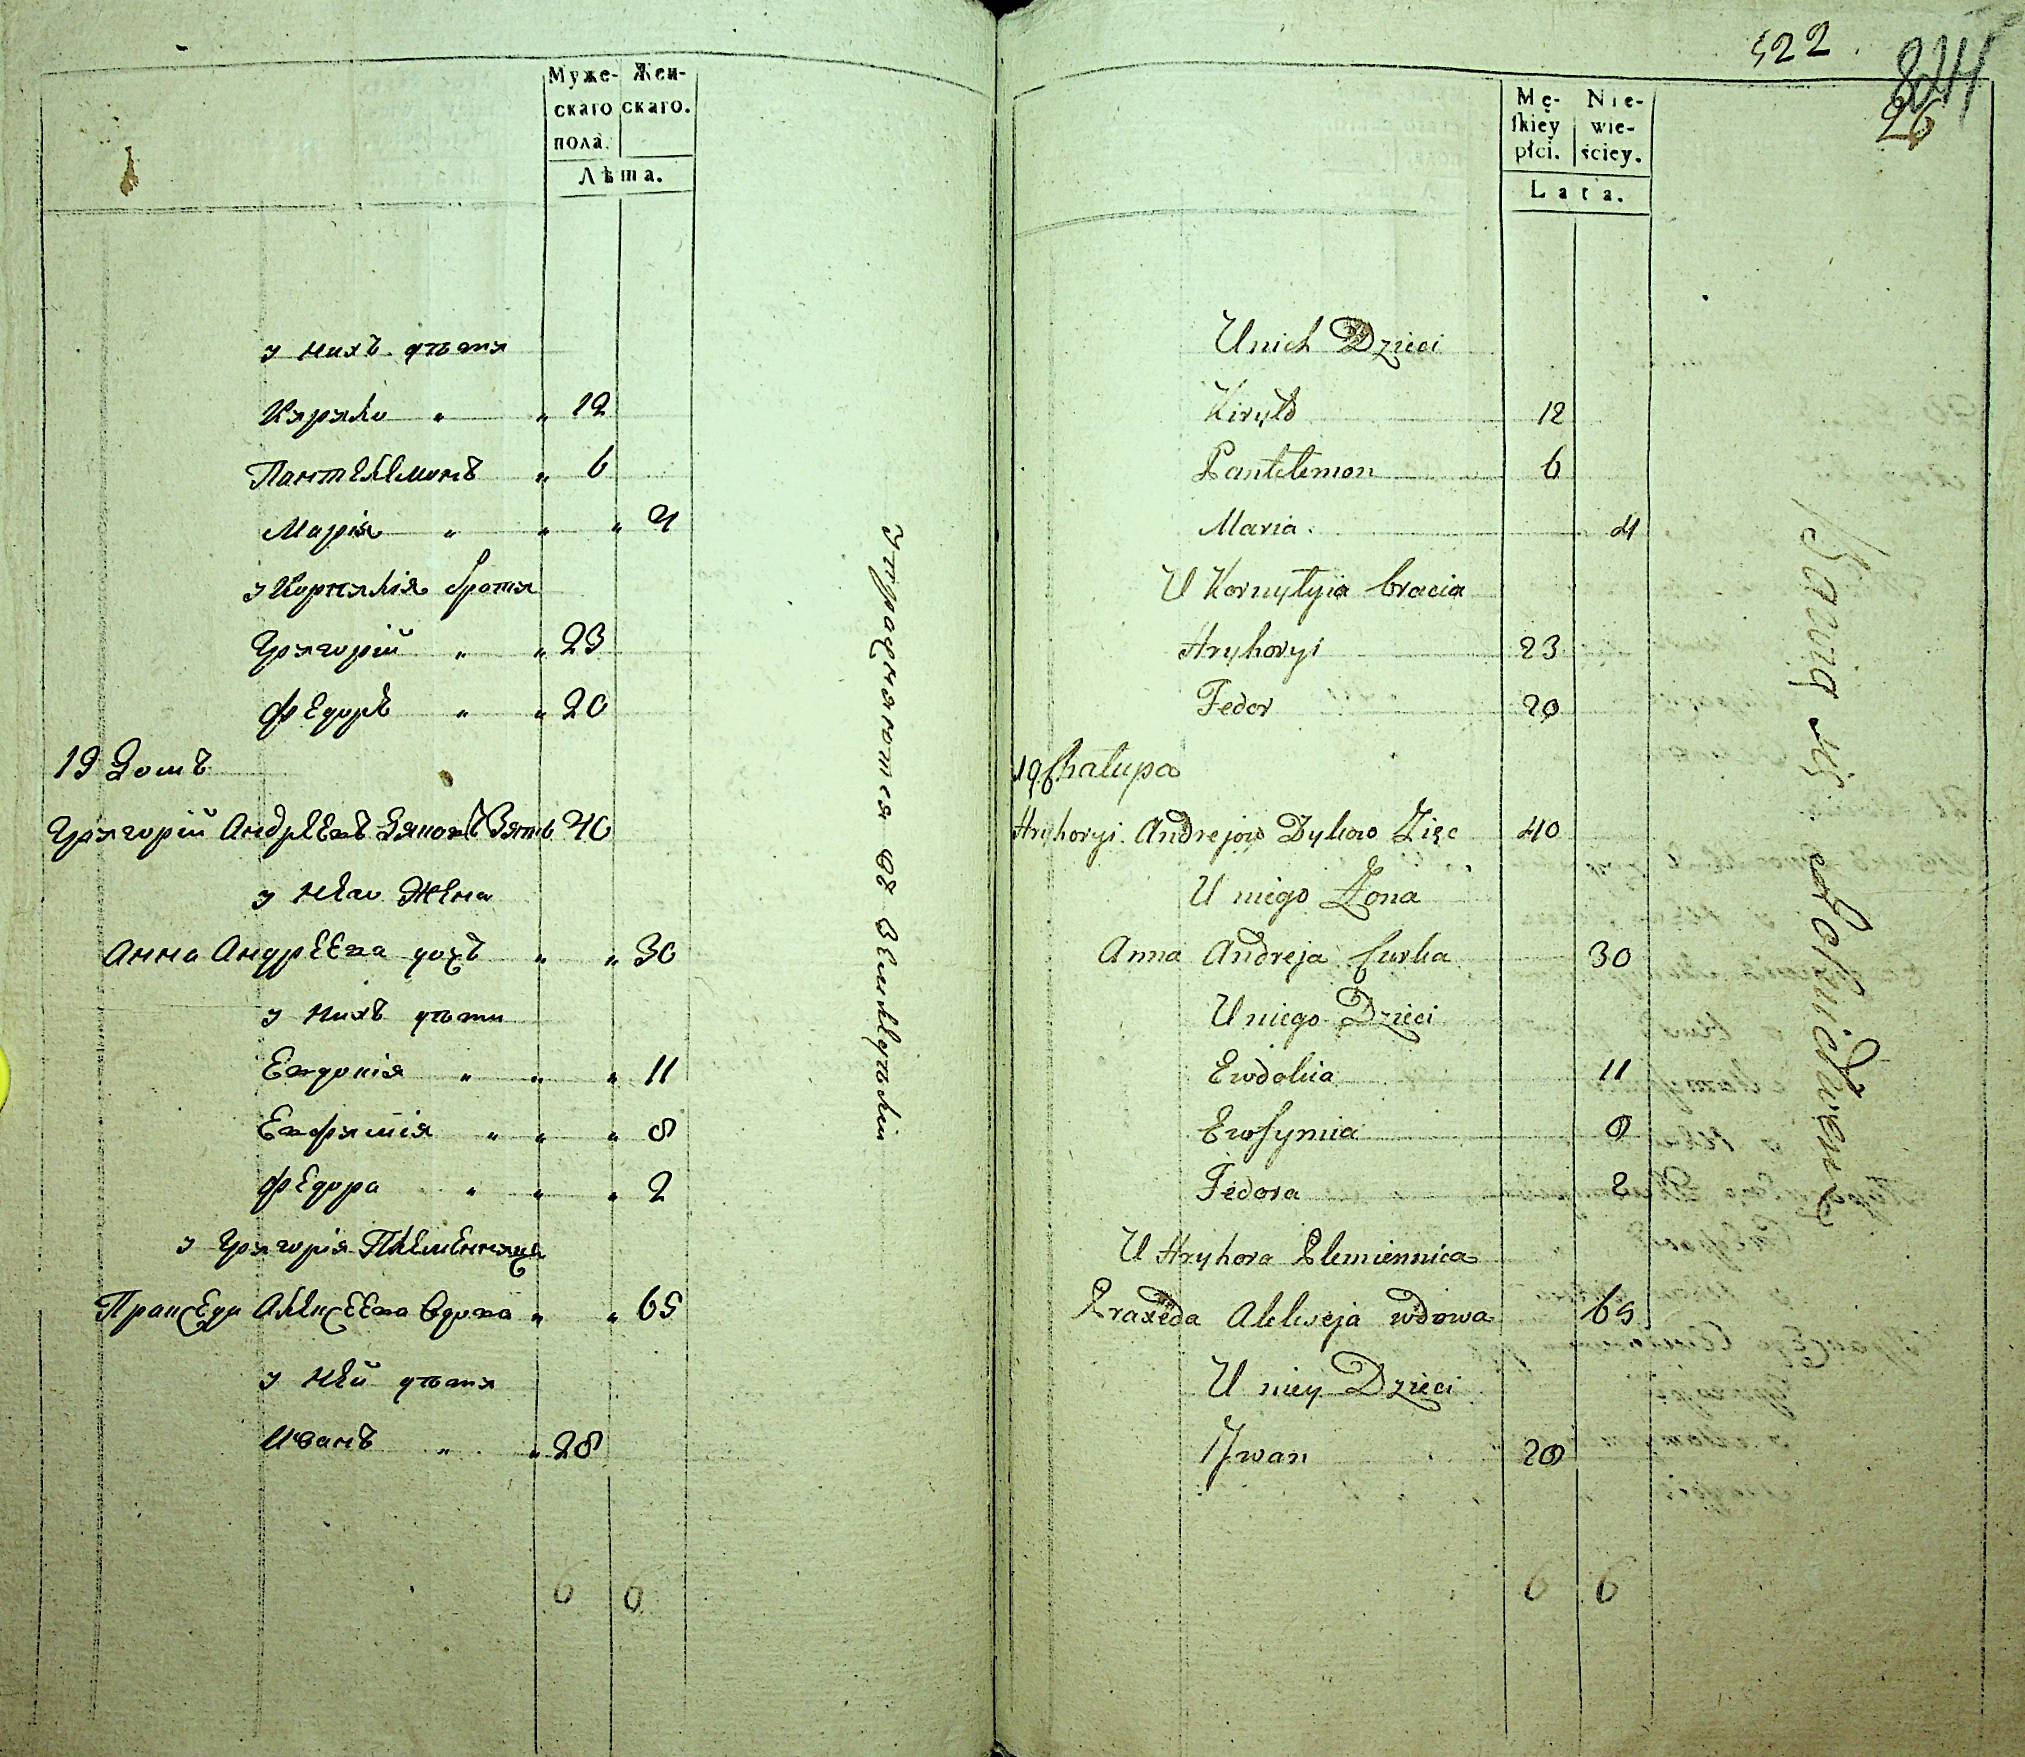 Муже- Жен-
скаго скаго.
пола.
Лѣта.
у нихъ дѣти
Кирило " " 12
Пантелемонъ " 6
Марія " " " 4
у Корнилія братя
Григорій " " 23
Федоръ " " 20
19 Домъ
Григорій Андреевъ Дяковъ Зять 40
у него Жена
Анна Андреева дочь " " 30
у нихъ дѣти
Евдокія " " " 11
Евфимія " " " 8
Федора " " " 2
у Григорія Племенница
Пракседа Алексеева вдова " " 65
у ней дѣти
Иванъ " " 28
6 6
Упражняются въ Земледѣліи
522
244
26
Mę- Nie-
skiey wie-
płci. ściey.
Lata.
U nich Dzieci
Kiryło 12
Pantelemon 6
Maria 4
U Kornyłyia bracia
Hryhoryi 23
Fedor 20
19 Chałupa
Hryhoryi Andrejow Dykow Zięc 40
U niego Zona
Anna Andreja Curka 30
U niego Dzieci
Ewdokia 11
Ewfymia 8
Fedora 2
U Hryhora Plemiennica
Praxeda Alekseja wdowa 65
U niey Dzieci
Iwan 28
6 6
Bawią się Rolnictwem